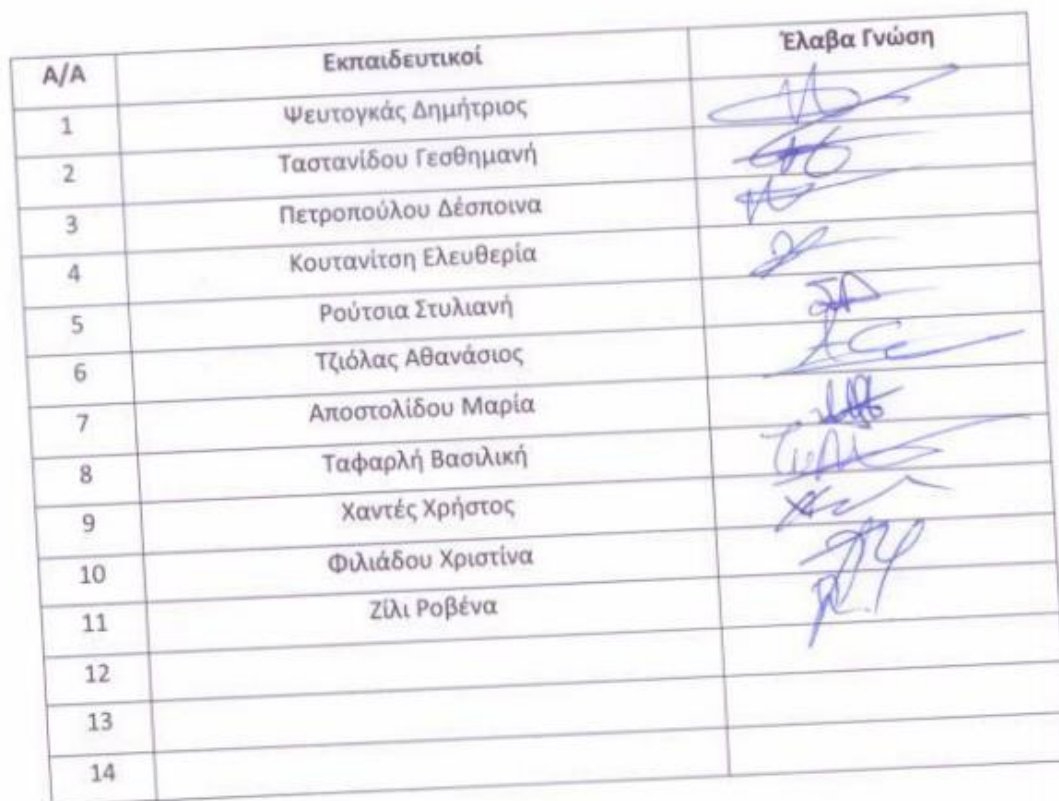 Α/Α Εκπαιδευτικοί Έλαβα Γνώση
1 Ψευτογκάς Δημήτριος
2 Ταστανίδου Γεσθημανή
3 Πετροπούλου Δέσποινα
4 Κουτανίτση Ελευθερία
5 Ρούτσια Στυλιανή
6 Τζιόλας Αθανάσιος
7 Αποστολίδου Μαρία
8 Ταφαρλή Βασιλική
9 Χαντές Χρήστος
10 Φιλιάδου Χριστίνα
11 Ζίλι Ροβένα
12
13
14